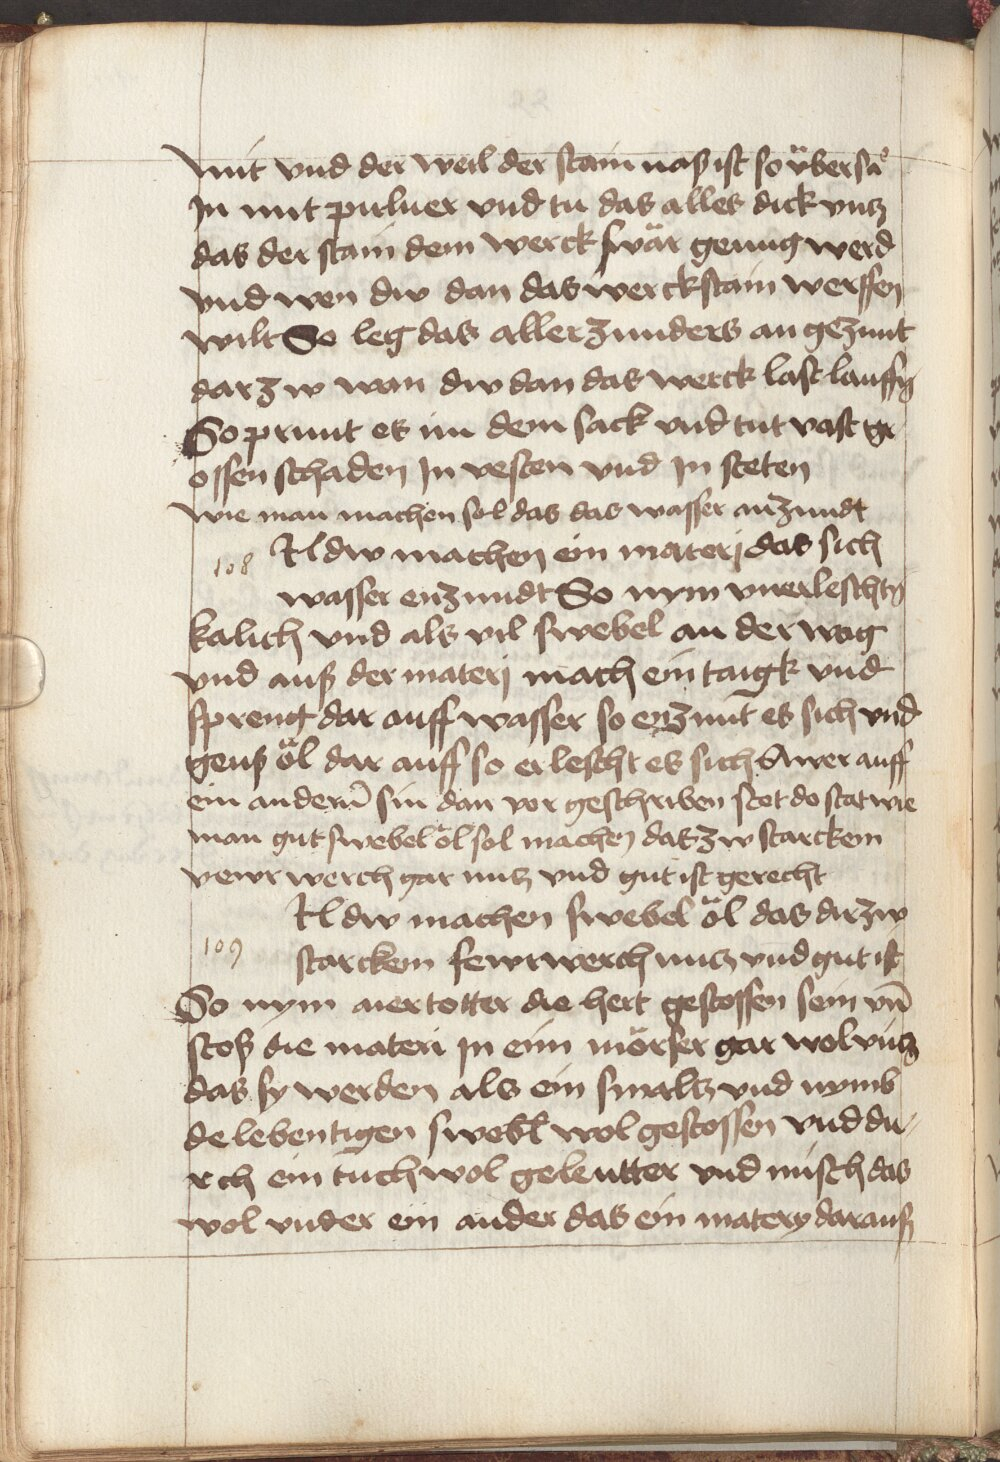 mit vnd der weil der stain naß ist so übersä
In mit puluer vnd tu das alles dick vntz
das der stain dem werck swär genug werd
vnd wen dw dan das werckstain werffen
wilt So leg das allerzunders an gezunt
darzw wan dw dan das werck last lauffen
So print es im dem sack vnd tut vast gr
ossen schaden In vesten vnd In steten
Wie man machen sol das das wasser anzundt
108 Wildw machen ein materj das sich
wasser enzundt So nym vnerleschten
kalich vnd als vil swebel an der wag
vnd auß der materj mach ein taigk vnd
spreng dar auff wasser so enzunt es sich vnd
geuß öl dar auff so erlescht es sich Awer auff
ein anderm sin dan vor geschriben stet do stat wie
man gut swebel öl sol machen das zw starckem
vewrwerch gar nutz vnd gut ist gerecht
109 Wildw machen swebel öl das dir zw
starckem fewrwerch nutz vnd gut ist
So nym aiertotter die hert gestossen sein vn̄
stoß die materi In eim mörser gar wol vntz
das sy werden als ein smaltz vnd nymb
de lebentigen swebl wol gestossen vnd du
rch ein tuch wol geleutter vnd misch das
wol vnder ein ander das ein matery darauß